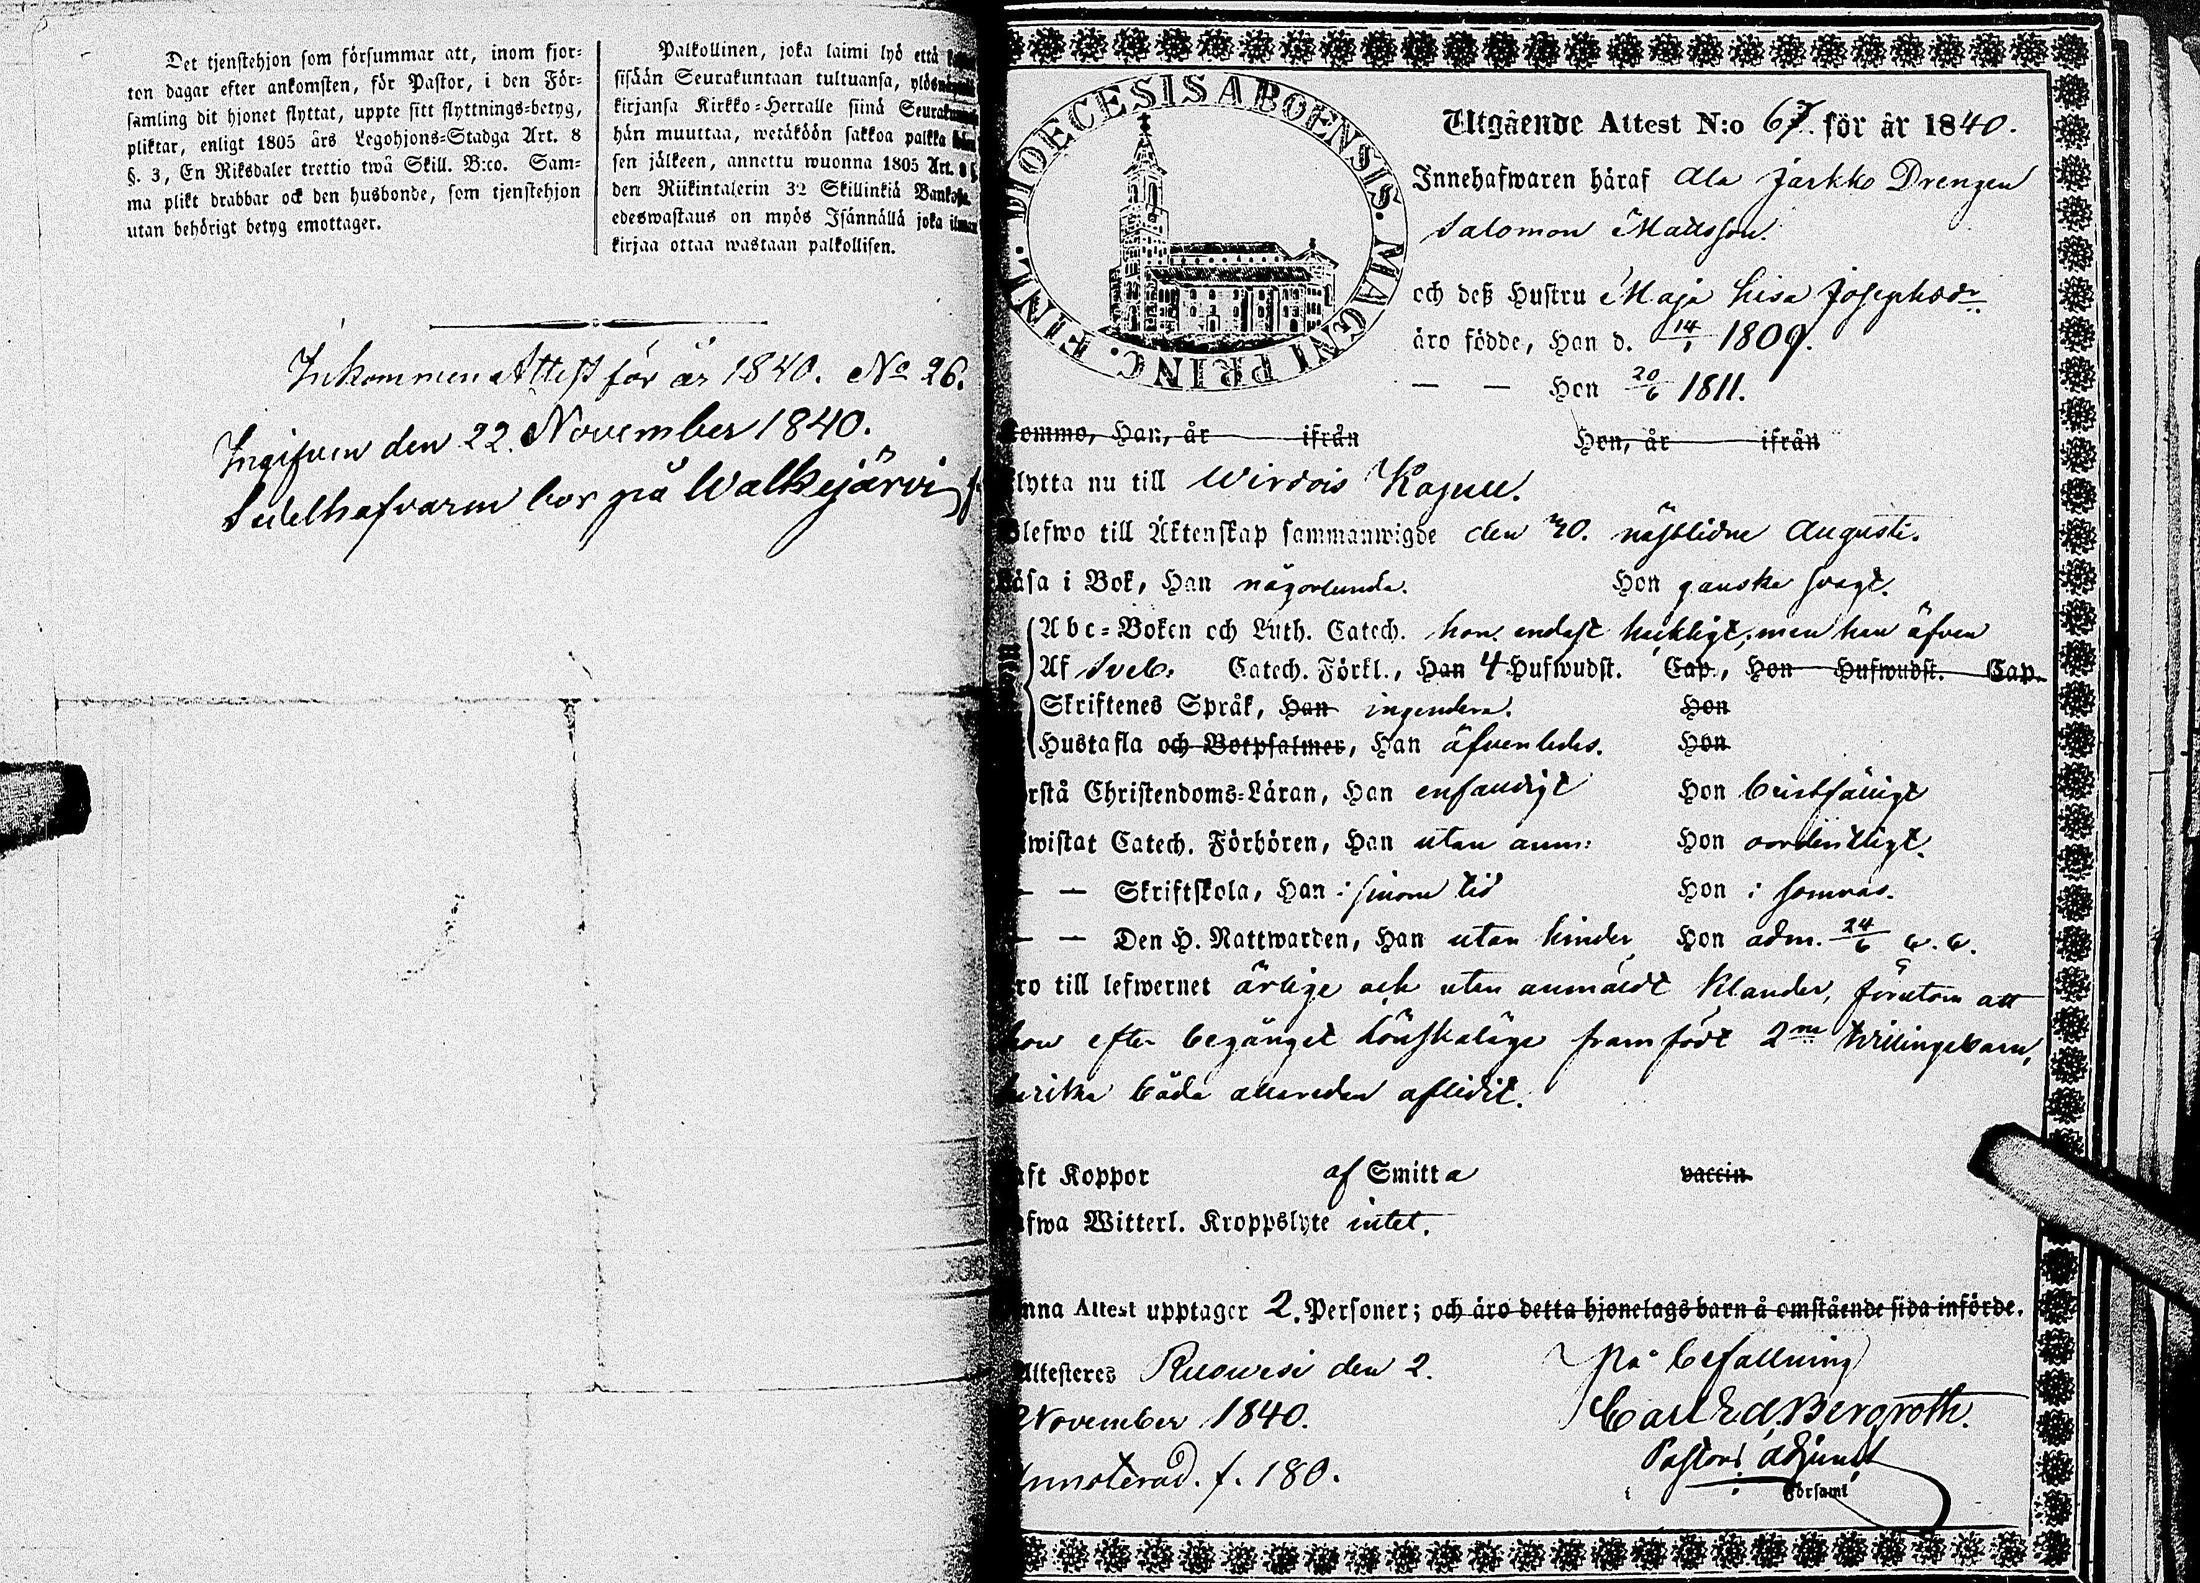 Det tjenstehjon som försummar att, inom fjor-
ton dagar efter ankomsten, för Pastor, i den För-
samling dit hjonet flyttat, uppte sitt flyttnings-betyg,
pliktar, enligt 1805 års Legohjons-Stadga Art. 8
§. 3, En Riksdaler trettio twå Skill. B:co. Sam-
ma plikt drabbar ock den husbonde, som tjenstehjon
utan behörigt betyg emottager.
Palkollinen, joka laimi lyö että
sisään Seurakuntaan tultuansa, ylös
kirjansa Kirkko-Herralle siinä
hän muuttaa, wetäköön sakkoa palkka
sen jälkeen, annettu wuonna 1805 Art. 8 §
den Riikintalerin 32 Skillinkiä Banko
edeswastaus on myös Isännällä joka ilman
kirjaa ottaa wastaan palkollisen.
Inkommen Attest för år 1840. No 26.
Ingifven den 22. November 1840.
Sedelhafvaren bor på Walkejärvi
DIOECESIS ABOENSIS. MAGNI PRINC. FINL.
Utgående Attest N:o 67. för år 1840.
Innehafwaren häraf Ala Jarkko Drengen
Salomon Mattsson.
och deß Hustru Maja Lisa Josephsdr
äro födde, Han d. 14/1 1809.
— — Hon 20/6 1811.
Komme, Han, år ifrån Hon, år ifrån
flytta nu till Wirdois Kapell.
Blefwo till Äktenskap sammanwigde den 30. nästlidne Augusti.
Läsa i Bok, Han någorlunda. Hon ganska svagt.
Abc-Boken och Luth. Catech. hon endast huckligt; men han äfven
Af Sveb. Catech. Förkl., Han 4 Hufwudst. Cap., Hon Hufwudst. Cap.
Skriftenes Språk, Han ingendera. Hon
Hustafla och Botpsalmer, Han äfvenledes. Hon
rstå Christendoms-Läran, Han enfaldigt Hon bristfälligt
wistat Catech. Förhören, Han utan anm: Hon oordentligt.
— — Skriftskola, Han i sinom tid Hon i somras.
— — Den H. Nattwarden, Han utan hinder Hon adm. 24/6
ro till lefwernet ärlige och utan anmäldt klander, förutom att
hon efter begånget lönskaläge framfödt 2ne tvillingebarn,
hvilka båda allareden aflidit.
aft Koppor af Smitta vaccin
afwa Witterl. Kroppslyte intet.
enna Attest upptager 2. Personer; och äro detta hjonelags barn å omstående sida införde.
Attesteres Ruowesi den 2. På befallning
November 1840. Carl Ed Bergroth.
Annoterad. f. 180. Pastors Adjunct
i Församl